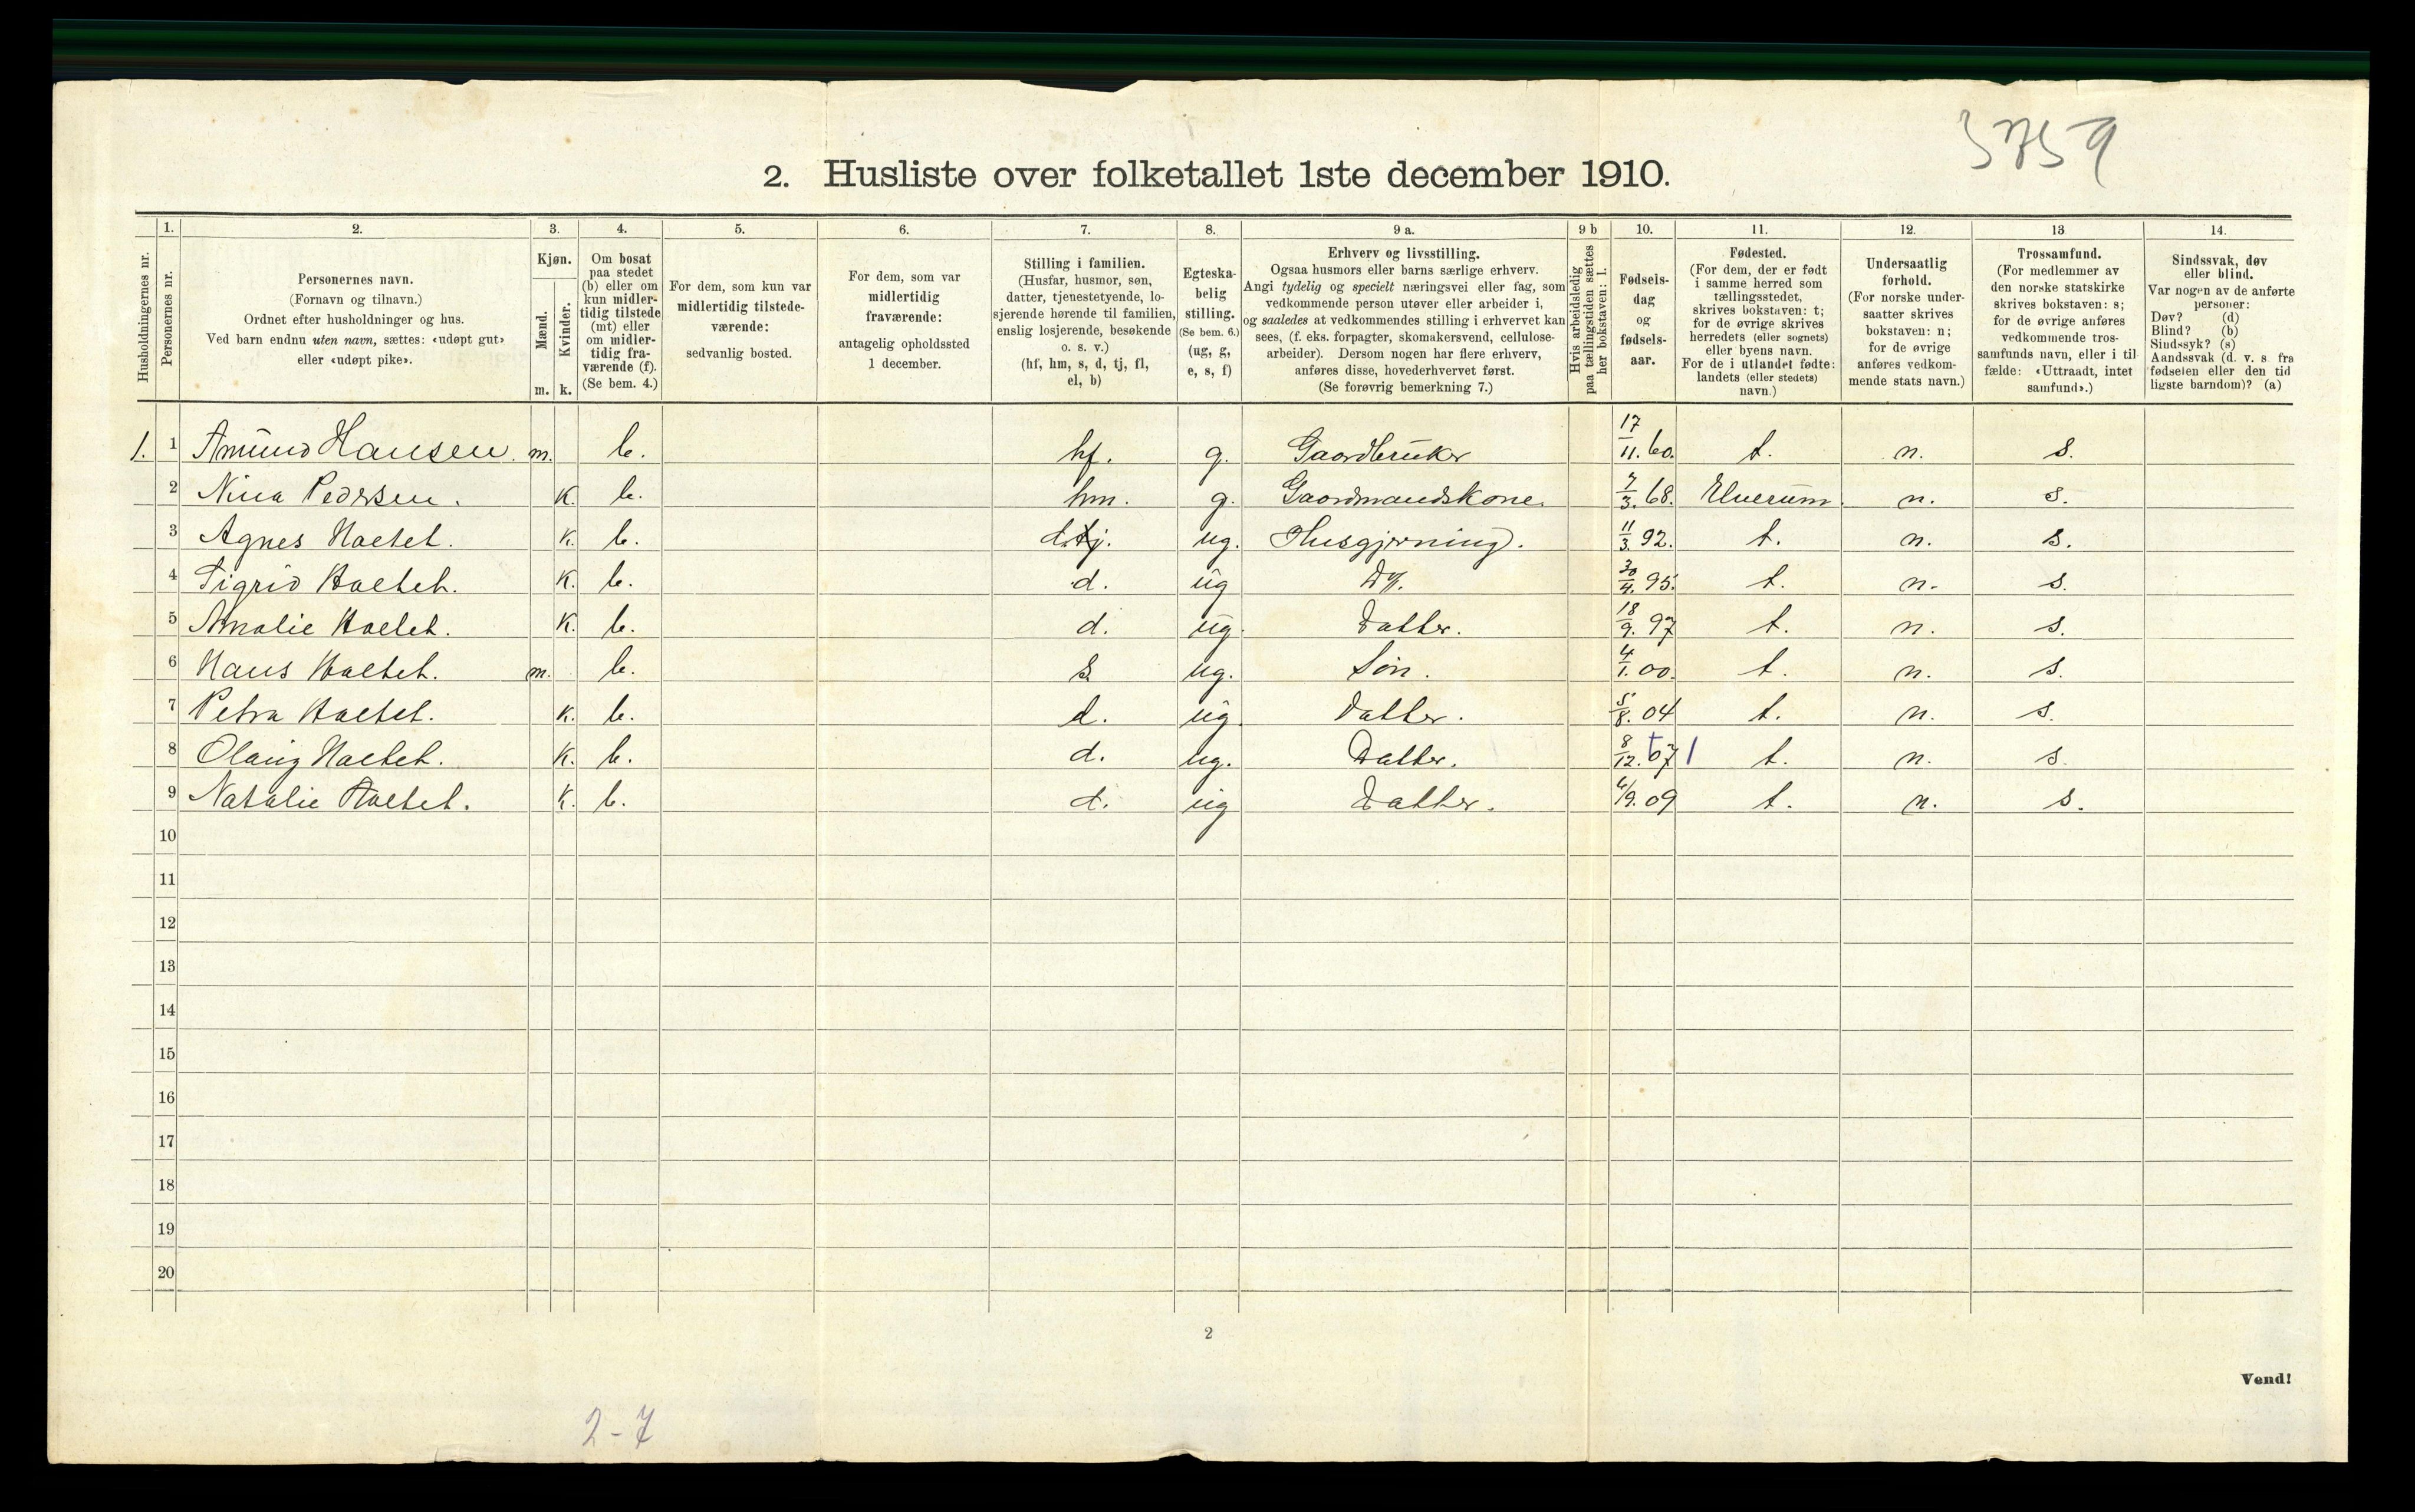 3759
2. Husliste over folketallet 1ste december 1910.
Husholdningernes nr.
1.
Personernes nr.
2.
Personernes navn.
(Fornavn og tilnavn.)
Ordnet efter husholdninger og hus.
Ved barn endnu uten navn, sættes: «udøpt gut»
eller «udøpt pike».
3.
Kjøn.
Mænd.
m.
Kvinder.
k.
4.
Om bosat
paa stedet
(b) eller om
kun midler-
tidig tilstede
(mt) eller
om midler-
tidig fra-
værende (f).
(Se bem. 4.)
5.
For dem, som kun var
midlertidig tilstede-
værende:
sedvanlig bosted.
6.
For dem, som var
midlertidig
fraværende:
antagelig opholdssted
1 december.
7.
Stilling i familien.
(Husfar, husmor, søn,
datter, tjenestetyende, lo-
sjerende hørende til familien,
enslig losjerende, besøkende
o. s. v.)
(hf, hm, s, d, tj, fl,
el, b)
8.
Egteska-
belig
stilling.
(Se bem. 6.)
(ug, g,
e, s, f)
9 a.
Erhverv og livsstilling.
Ogsaa husmors eller barns særlige erhverv.
Angi tydelig og specielt næringsvei eller fag, som
vedkommende person utøver eller arbeider i,
og saaledes at vedkommendes stilling i erhvervet kan
sees, (f. eks. forpagter, skomakersvend, cellulose-
arbeider). Dersom nogen har flere erhverv,
anføres disse, hovederhvervet først.
(Se forøvrig bemerkning 7.)
9 b
Hvis arbeidsledig
paa tællingstiden sættes
her bokstaven: l.
10.
Fødsels-
dag
og
fødsels-
aar.
11.
Fødested.
(For dem, der er født
i samme herred som
tællingsstedet,
skrives bokstaven: t;
for de øvrige skrives
herredets (eller sognets)
eller byens navn.
For de i utlandet fødte:
landets (eller stedets)
navn.)
12.
Undersaatlig
forhold.
(For norske under-
saatter skrives
bokstaven: n;
for de øvrige
anføres vedkom-
mende stats navn.)
13
Trossamfund.
(For medlemmer av
den norske statskirke
skrives bokstaven: s;
for de øvrige anføres
vedkommende tros-
samfunds navn, eller i til-
fælde: «Uttraadt, intet
samfund».)
14.
Sindssvak, døv
eller blind.
Var nogen av de anførte
personer:
Døv? (d)
Blind? (b)
Sindssyk? (s)
Aandssvak (d. v. s. fra
fødselen eller den tid
ligste barndom)? (a)
1. 1 Amund Hansen. m. b. hf. g. Gaardbruker 17/11. 60. t. n. s.
2 Nina Pedersen. K. b. hm. g. Gaardmandskone. 7/3. 68. Elverum. n. s.
3 Agnes Haslet. K. b. d. tj. ug. Husgjerning. 11/3. 92. t. n. s.
4 Sigrid K. b. d. ug 30/4. 95. t. n. s.
5 Amalie K. b. d. ug. Datter. 18/9. 97 t. n. s.
6 Hans m. b. s ug. Søn. 4/1. 00. t. n. s.
7 Petra K. b. d. ug. Datter. 5/8. 04 t. n. s.
8 Olaug K. b. d. ug. Datter. 8/12. 07 t. n. s.
9 Natalie K. b. d. ug Datter. 6/9. 09 t. n. s.
10
11
12
13
14
15
16
17
18
19
20
2
Vend!
2-7